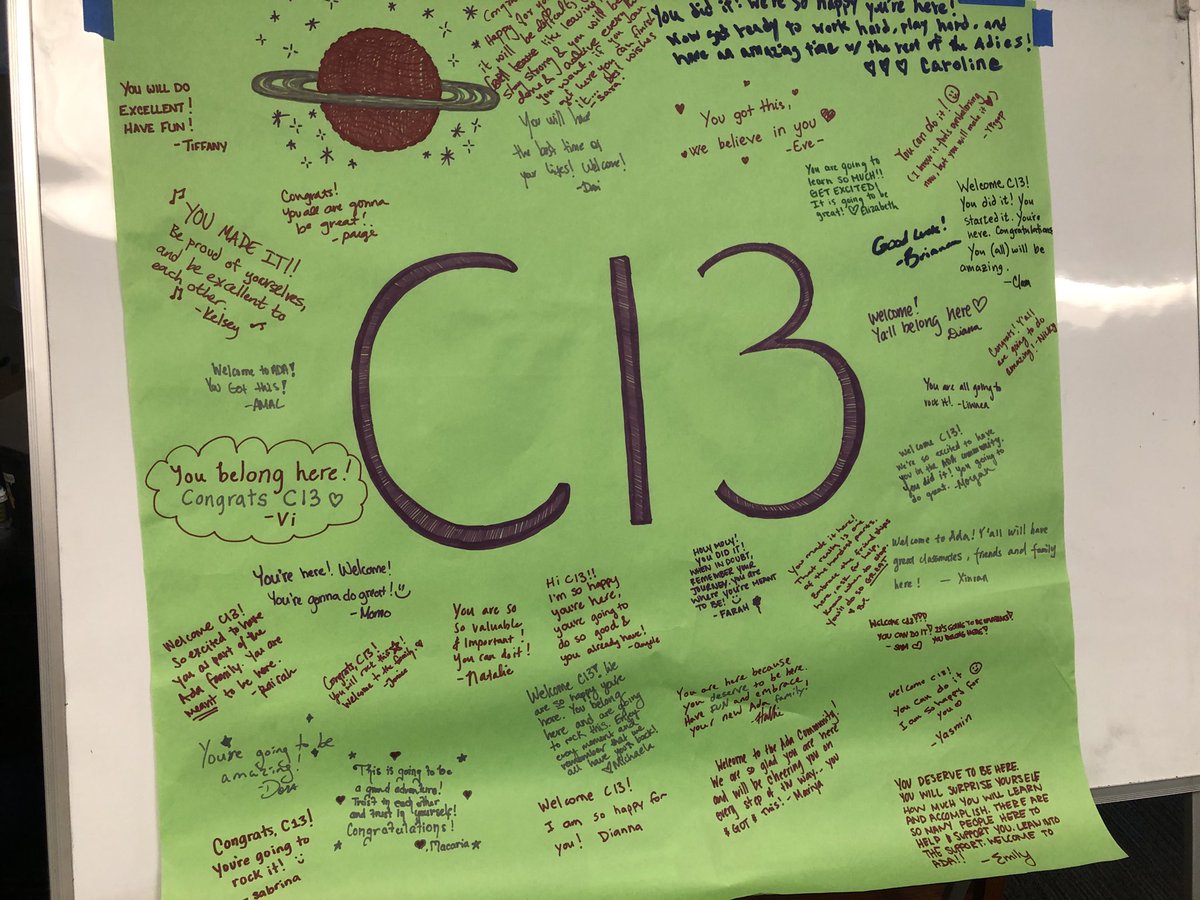 YOU WILL DO
EXCELLENT!
HAVE FUN!
-TIFFANY
Congrats!
You all are gonna
be great!
-paige
♫ YOU MADE IT!!
Be proud of yourselves,
and be excellent to
each other.
♫ -Kelsey
Welcome to ADA!
You Got this!
-AMAL
You belong here!
Congrats C13 ♡
-Vi
it will be
stay strong & you will be
You will have
the best time of
your lives! Welcome!
You did it! We're so happy you're here!
Now get ready to work hard, play hard, and
have an amazing time w/ the rest of the Adies!
♡♡♡ Caroline
You got this,
we believe in you
-Eve-
You can do it! ☺
You are going to
learn so MUCH!!
GET EXCITED!
It is going to be
great! ♡Elizabeth
Good Luck!
-Brianna
Welcome C13!
You did it! You
started it. You're
here. Congratulations
You (all) will be
amazing.
Welcome!
Ya'll belong here ♡
Diana
Congrats! Y'all
are going to do
amazing! -Nicky
You are all going to
rock it! -Linnea
Welcome C13!
We're so excited to have
you in the ADA community.
You did it! You going to
do great. -Morgan
C13
You're here! Welcome!
You're gonna do great! ☺
-Momo
Welcome C13!
So excited to have
you as part of the
Ada family. You are
meant to be here.
Congrats, C13!
You will rock this
welcome to the family.
You are so
valuable
& Important!
You can do it!
-Natalie
Hi C13!!
I'm so happy
you're here,
you're going to
do so good &
you already have!
HOLY MOLY!
YOU DID IT!
WHEN IN DOUBT,
REMEMBER YOUR
JOURNEY. YOU ARE
WHERE YOU'RE MEANT
TO BE! ☺
-FARAH
You made it here!
That really is one
of the hardest parts.
Embrace the friendships
Welcome to Ada! Y'all will have
great classmates, friends and family
here! — Xinran
WELCOME C13!
YOU CAN DO IT! IT'S GOING TO BE
YOU BELONG HERE!
- SAM ♡
Welcome C13! We
are so happy you're
here. You belong
here and are going
to rock this. Enjoy
every moment and
remember that we
all have your back!
♡Michaela
You are here because
you deserve to be here.
Have FUN and embrace
your new Ada family!
welcome C13!
You can do it
I am so happy for
you ☺
-Yasmin
You're going to be
amazing!
This is going to be
a grand adventure!
Trust in each other
and trust in yourself!
Congratulations!
.Macaria
Congrats, C13!
You're going to
rock it! ☺
-sabrina
Welcome C13!
I am so happy for
you! Dianna
Welcome to the Ada Community!
We are so glad you are here
and will be cheering you on
every step of the way.. you
GOT this! - Mariya
YOU DESERVE TO BE HERE.
YOU WILL SURPRISE YOURSELF
HOW MUCH YOU WILL LEARN
AND ACCOMPLISH. THERE ARE
SO MANY PEOPLE HERE TO
HELP & SUPPORT YOU. LEAN INTO
THE SUPPORT. WELCOME TO
ADA!! -Emily